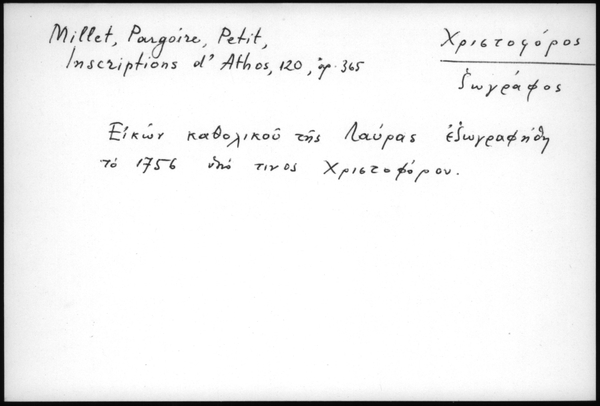 Millet, Pargoire, Petit,
Inscriptions d' Athos, 120, ἀρ. 365
Χριστοφόρος
ζωγράφος
Εἰκών καθολικοῦ τῆς Λαύρας ἐζωγραφήθη
τό 1756 ὑπό τινος Χριστοφόρου.